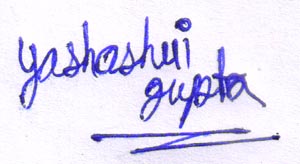 yashashvi
gupta